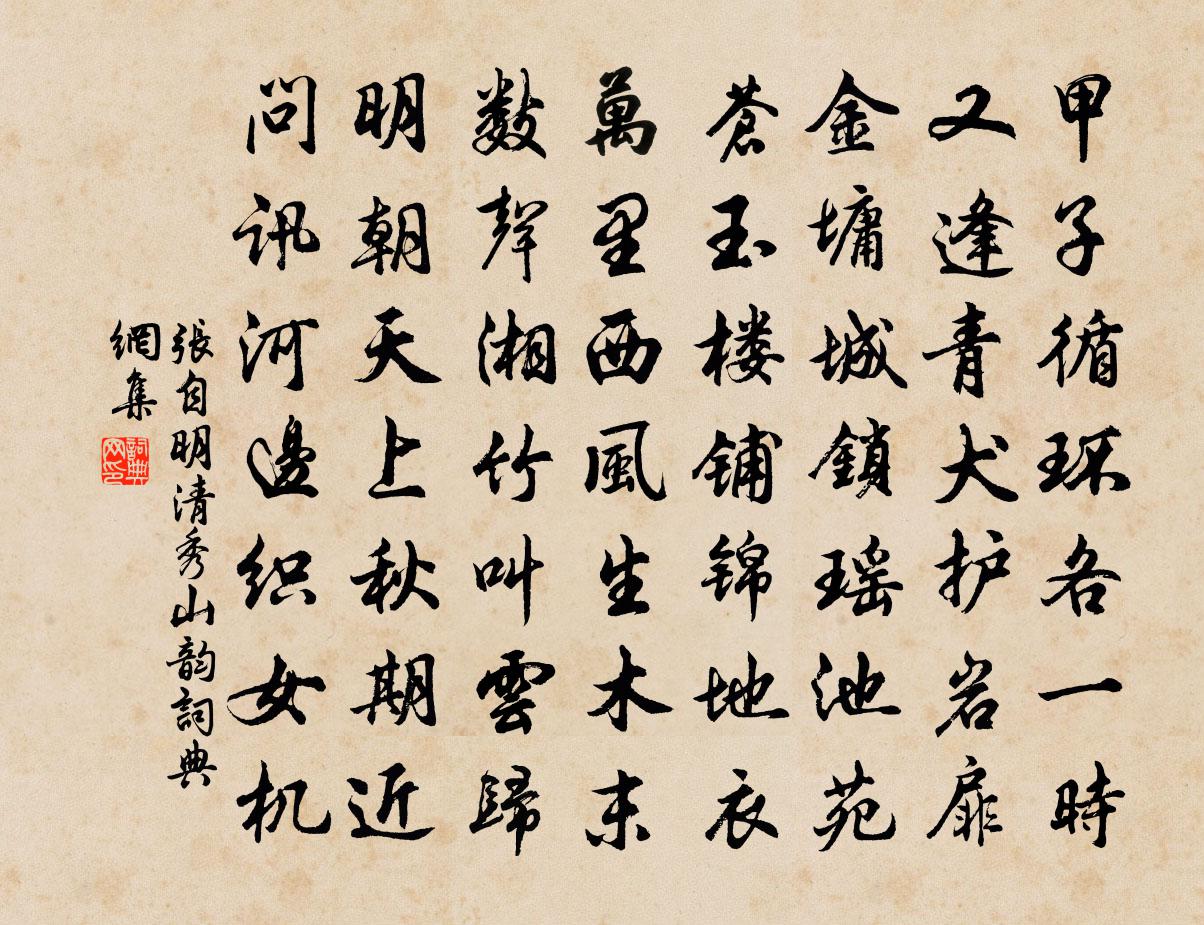 甲子循环各一時
又逢青犬护岩扉
金墉城鎖瑶池苑
蒼玉楼铺锦地衣
萬里西風生木末
数聲湘竹叫雲歸
明朝天上秋期近
問讯河邊织女机
張自明清秀山韵詞典
網集
詞典
网印